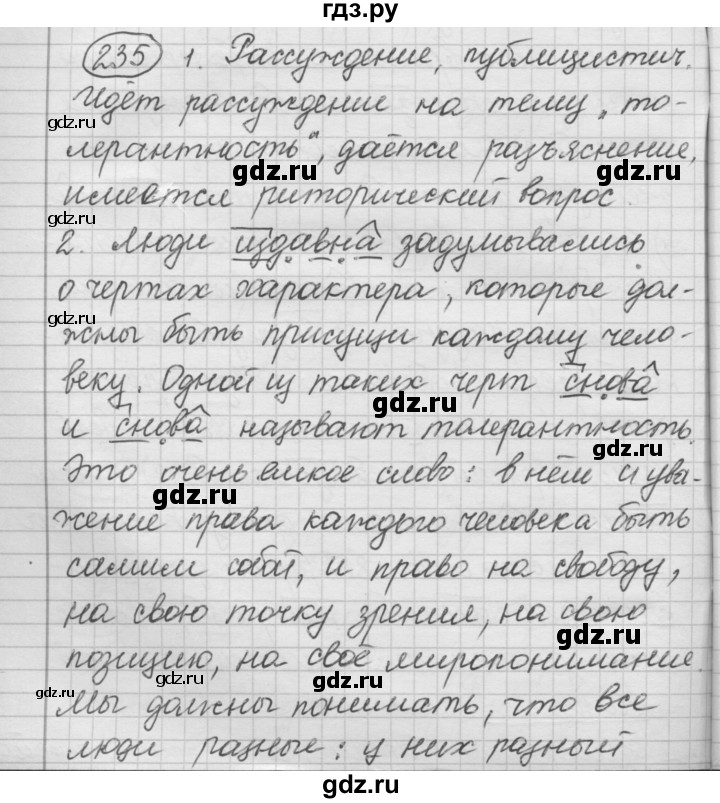 гдз.ру
235 1. Рассуждение, публицистич.
Идёт рассуждение на тему „то-
gdz.ru
лерантность", даётся разъяснение,
gdz.ru
gdz.ru
имеется риторический вопрос.
gdz.ru
2. Люди издавна задумывались
о чертах характера, которые дол-
gdz.ru
жны быть присущи каждому чело-
веку. Одной из таких черт снова
gdz.ru
gdz.ru
и снова называют толерантность.
Это очень ёмкое слово: в нём и ува-
gdz.ru
gdz.ru
жение права каждого человека быть
самим собой, и право на свободу,
gdz.ru
на свою точку зрения, на свою
gdz.ru
позицию, на своё миропонимание.
gdz.ru
gdz.ru
Мы должны понимать, что все
люди разные: у них разный
gdz.ru
gdz.ru